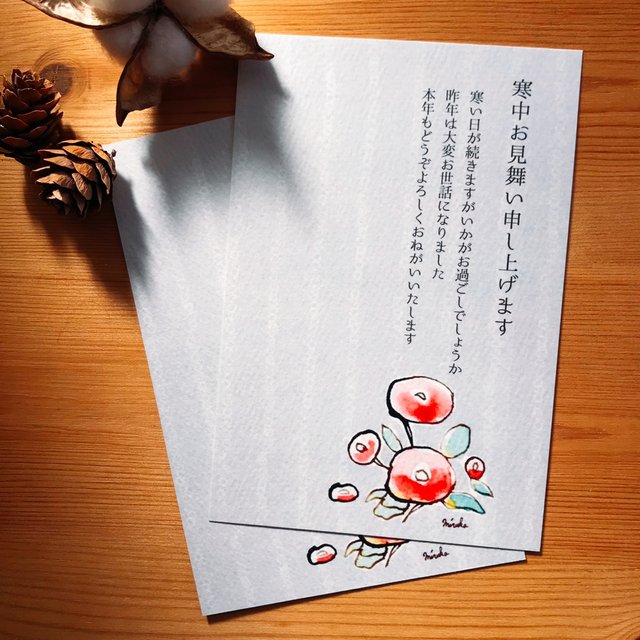 寒中お見舞い申し上げます
寒い日が続きますがいかがお過ごしでしょうか
昨年は大変お世話になりました
本年もどうぞよろしくおねがいいたします